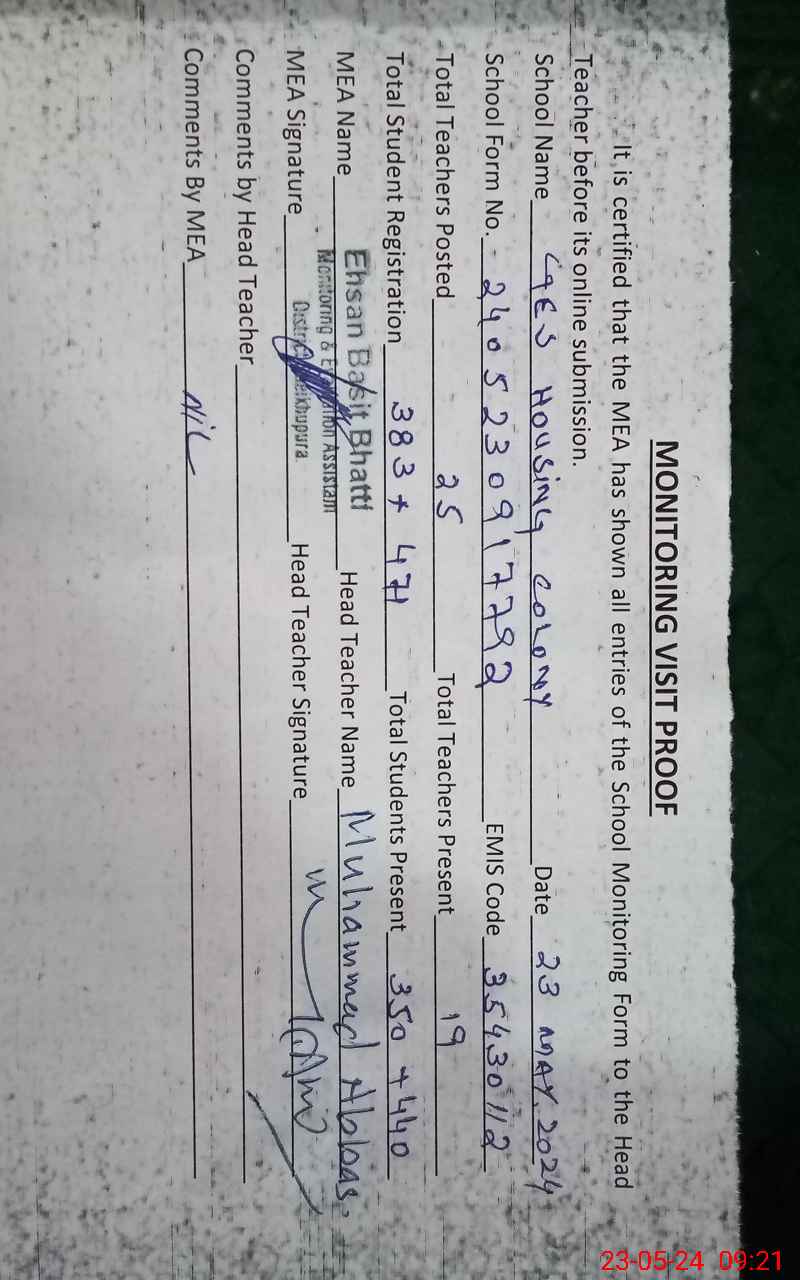 MONITORING VISIT PROOF
It is certified that the MEA has shown all entries of the School Monitoring Form to the Head
Teacher before its online submission.
School Name GES HOUSING COLONY Date 23 MAY. 2024
School Form No. 2405230917792 EMIS Code 35430112
Total Teachers Posted 25 Total Teachers Present 19
Total Student Registration 383 + 471 Total Students Present 350 + 440
MEA Name Ehsan Basit Bhatti Head Teacher Name Muhammad Abbas.
Monitoring & Evaluation Assistant
MEA Signature District Sheikhupura Head Teacher Signature
Comments by Head Teacher
Comments By MEA Nil
23-05-24 09:21